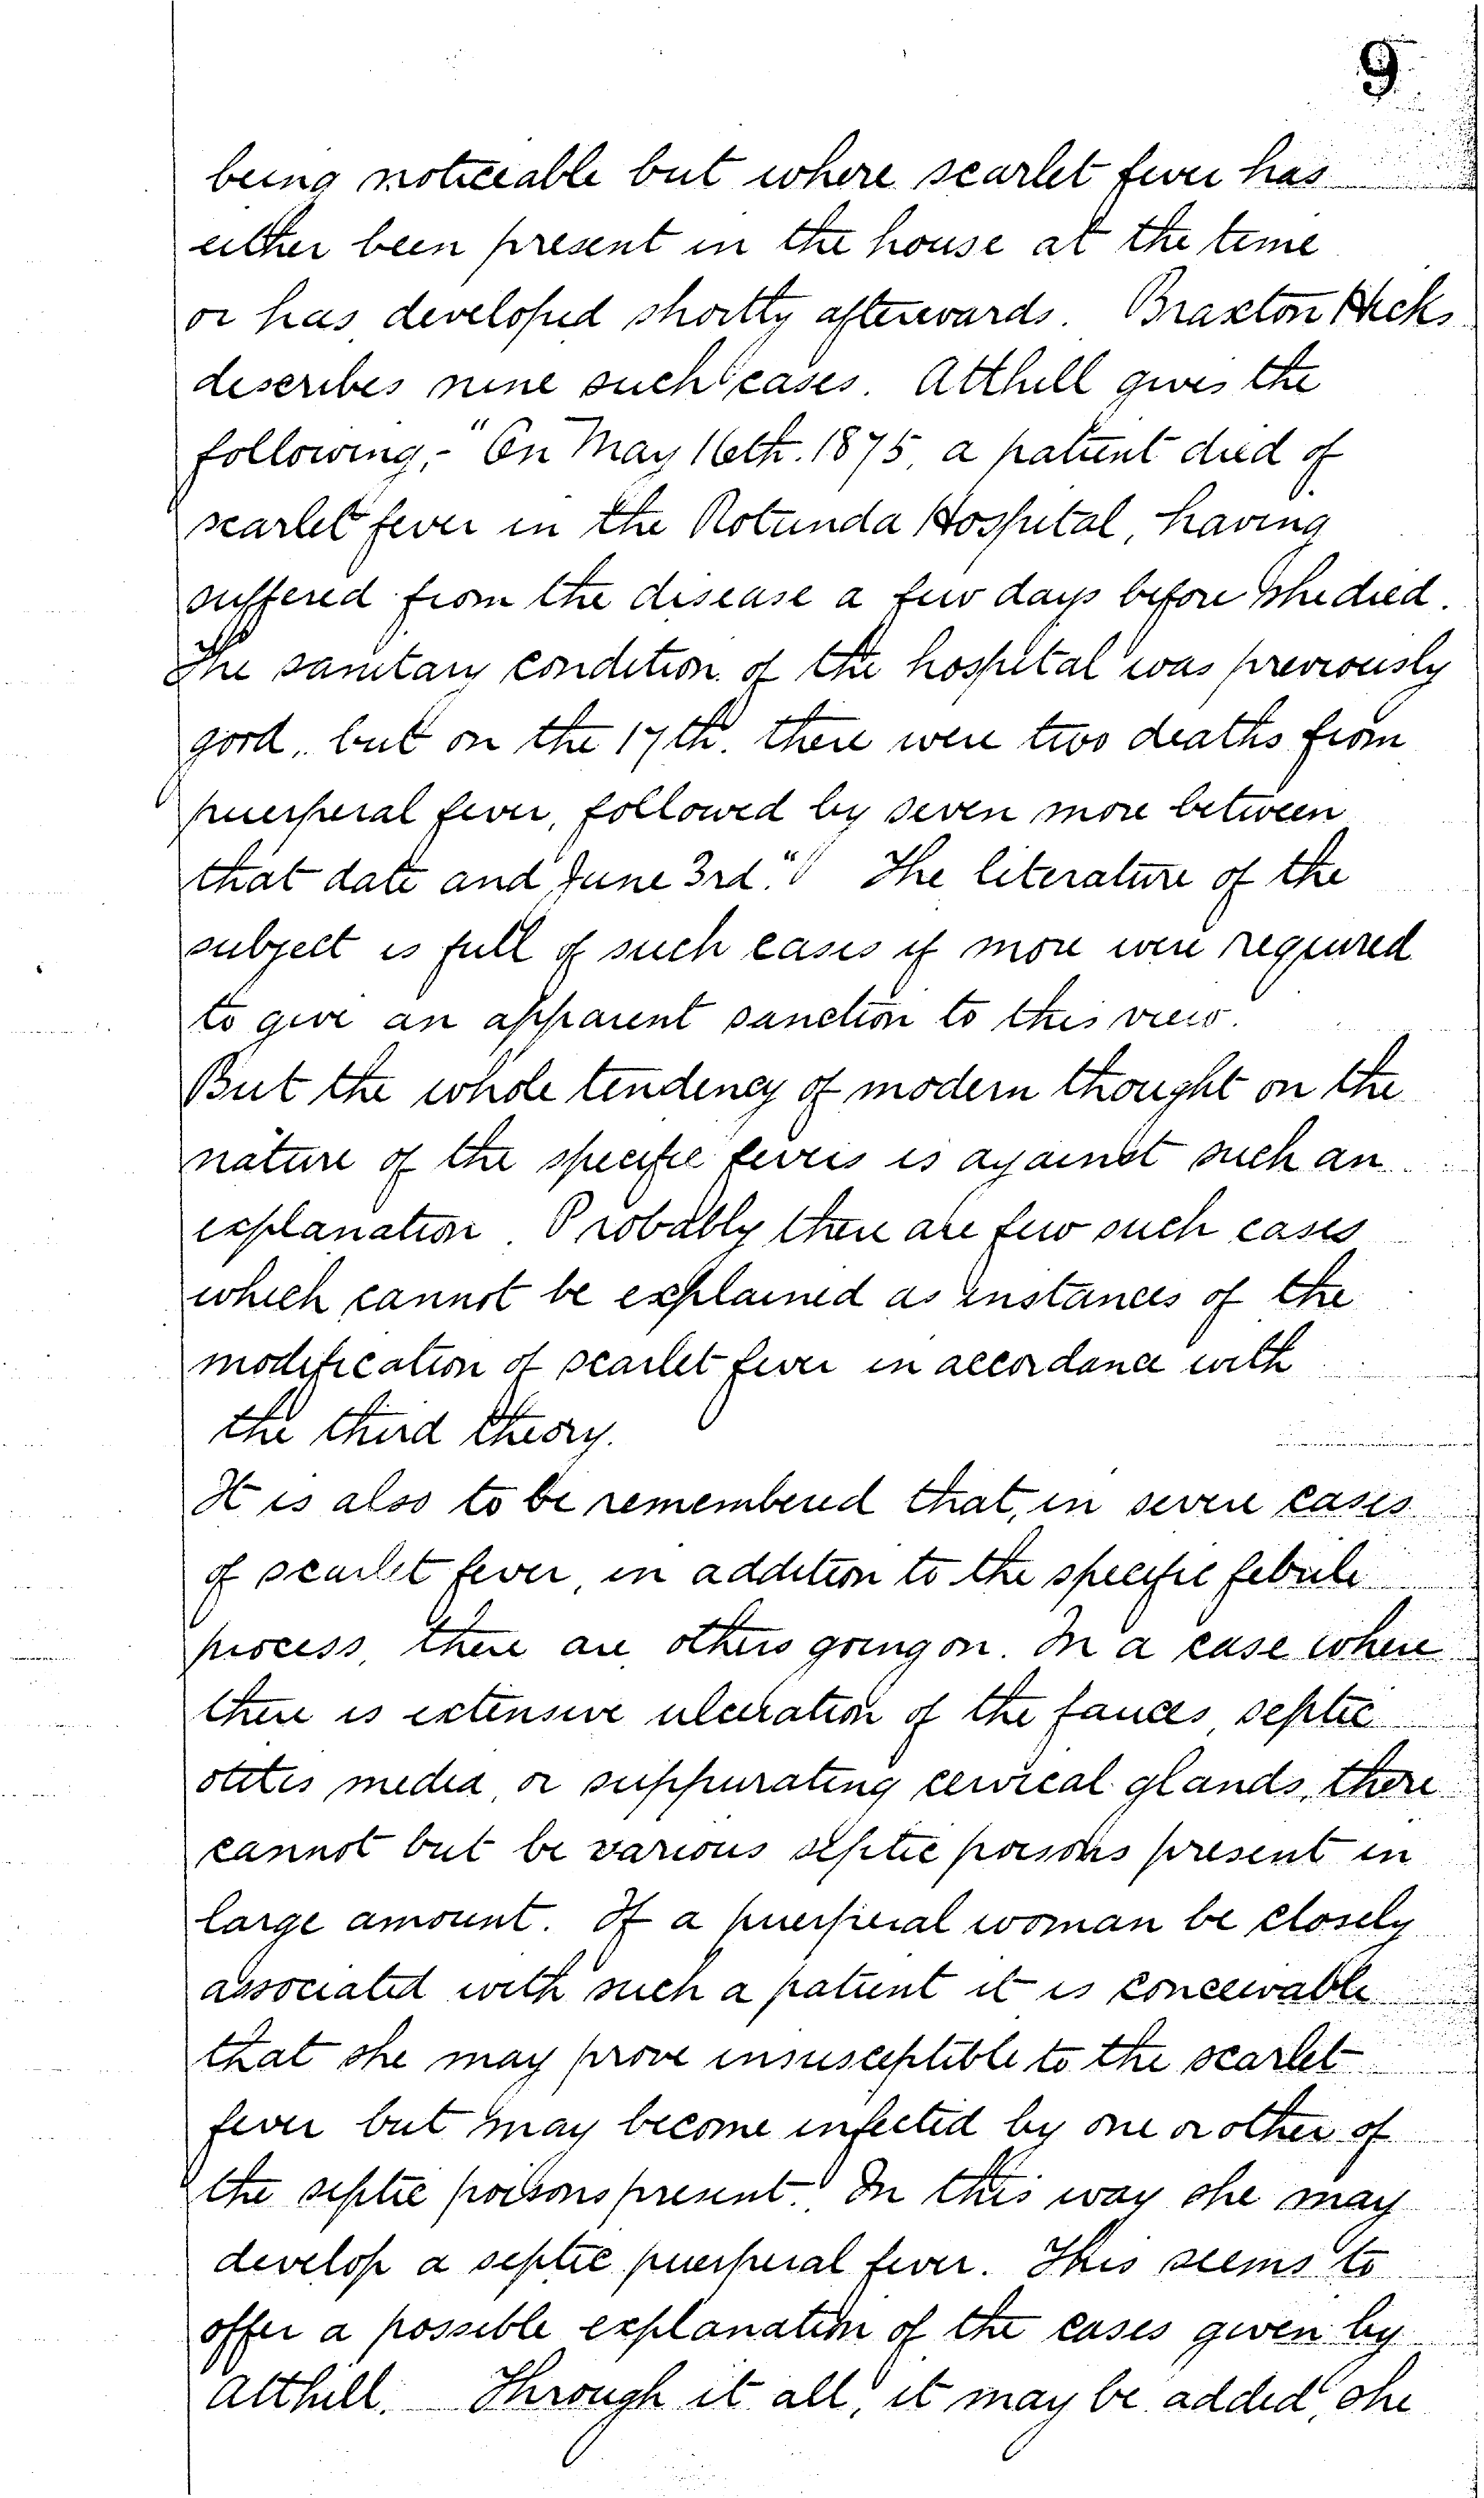 9
being noticeable but where scarlet fever has
either been present in the house at the time
or has developed shortly afterwards. Braxton Hicks
describes nine such cases. Atthill gives the
following,- "On May 16th. 1875, a patient died of
scarlet fever in the Rotunda Hospital, having
suffered from the disease a few days before she died.
The sanitary condition of the hospital was previously
good, but on the 17th. there were two deaths from
puerperal fever, followed by seven more between
that date and June 3rd." The literature of the
subject is full of such cases if more were required
to give an apparent sanction to this view.
But the whole tendency of modern thought on the
nature of the specific fevers is against such an
explanation. Probably there are few such cases
which cannot be explained as instances of the
modification of scarlet fever in accordance with
the third theory.
It is also to be remembered that, in severe cases
of scarlet fever, in addition to the specific febrile
process, there are others going on. In a case where
there is extensive ulceration of the fauces, septic
otitis media, or suppurating cervical glands, there
cannot but be various septic poisons present in
large amount. If a puerperal woman be closely
associated with such a patient it is conceivable
that she may prove insusceptible to the scarlet
fever but may become infected by one or other of
the septic poisons present. In this way she may
develop a septic puerperal fever. This seems to
offer a possible explanation of the cases given by
Atthill. Through it all, it may be added, she